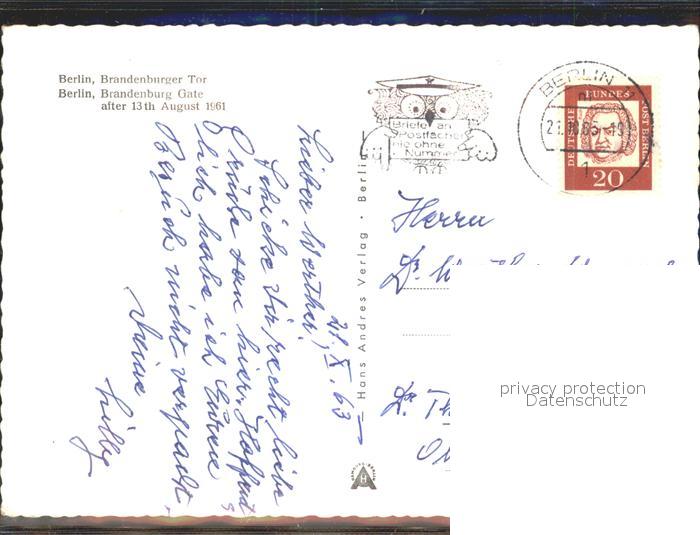 Berlin, Brandenburger Tor
Berlin, Brandenburg Gate
after 13th August 1961
Briefe an
Postfächer
nie ohne
Nummer
BERLIN
1
DEUTSCHE
BUNDES
POST BERLIN
20
Hans Andres Verlag · Berlin
HAMBURG-BERLIN
21. X. 63
Lieber Werther!
Schicke Dir recht liebe
Grüße von hier. Hoffent
lich habe ich Euren
Besuch nicht verpaßt.
Deine
Lilly
Herrn
Dr.
Dr. Th
privacy protection
Datenschutz